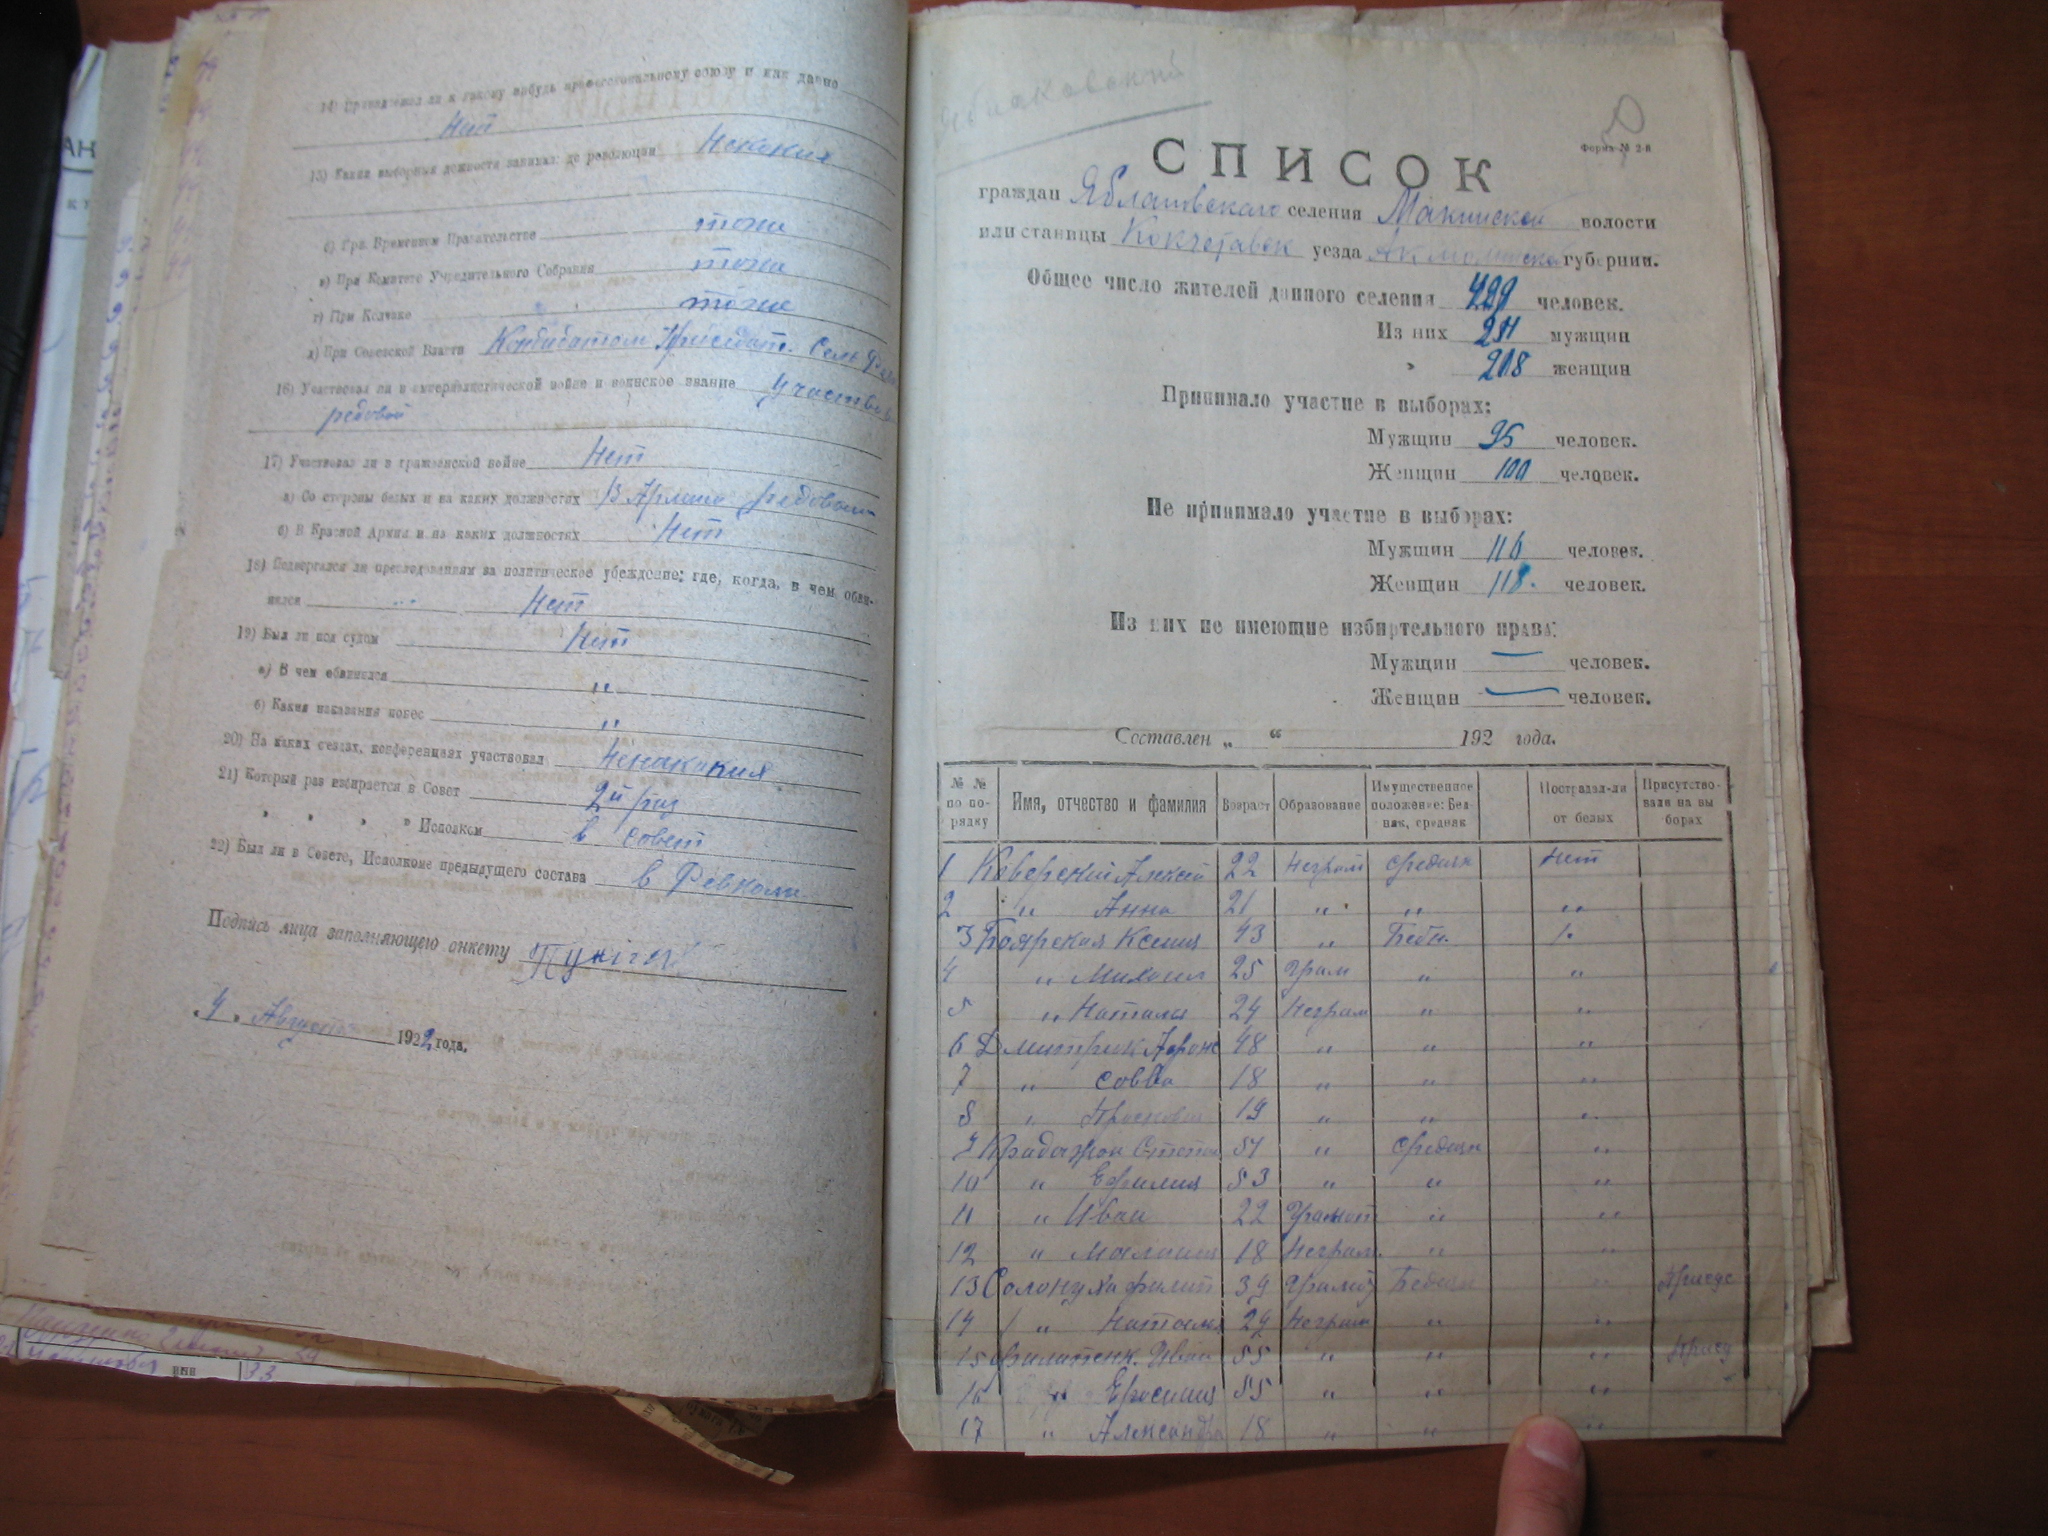 14) Принадлежал ли к какому нибудь профессиональному союзу и как давно
Нет
15) Какие выборныя должности занимал: до революции Некакия
б) При Временном Правительстве тоже
в) При Комитете Учредительного Собрания тоже
г) При Колчаке тоже
д) При Советской Власти Кондидатом Председат. Сель
16) Участвовал ли в империалистической войне и воинское звание Участвов
редовой
17) Участвовал ли в гражданской войне Нет
а) Со стороны белых и на каких должностях В Армии редовым
б) В Красной Армии и на каких должностях Нет
18) Подвергался ли преследованиям за политическое убеждение; где, когда, в чем обви-
нялся Нет
19) Был ли под судом Нет
а) В чем обвинялся "
б) Какия наказания понес "
20) На каких сездах, конференциях участвовал Ненакакия
21) Который раз избирается в Совет 2й раз
" " " " Исполком в совет
22) Был ли в Совете, Исполкоме предыдущего состава в Ревкоме
Подпись лица заполняющего анкету
"4" Августа 1922 года.
Форма № 2-й
СПИСОК
граждан селения Макинской волости
или станицы Кокчетавск уезда Акмолинской губернии.
Общее число жителей данного селения 429 человек.
Из них 211 мужщин
" 218 женщин
Принимало участие в выборах:
Мужщин 95 человек.
Женщин 100 человек.
Не принимало участие в выборах:
Мужщин 116 человек.
Женщин 118. человек.
Из них не имеющие избиртельного права:
Мужщин — человек.
Женщин — человек.
Составлен „ “ 192 года.
№ № по по-рядку Имя, отчество и фамилия Возраст Образование Имущественное положение: Бед-няк, средняк Пострадал-ли от белых Присутство-вали на вы борах
1 Каверский Алексей 22 Неграм средняк нет
2 " Анна 21 " " "
3 Боярская Ксения 43 " Бедн. "
4 " Михаил 25 Грам " "
5 " Наталя 24 Неграм " "
6 Дмитрюк Афон 48 " " "
7 " Савва 18 " " "
8 " Прасковя 19 " " "
9 Степан 51 " средняк "
10 " Ефимия 53 " " "
11 " Иван 22 Грамот " "
12 " Малания 18 Неграм. " "
13 Солонуха Филип 39 Грамот Бедняк " Присус
14 " Наталя 29 Неграм " "
15 Филипенк. Иван 55 " " " Прису
16 " Ефросиния 55 " " "
17 " Александр 18 " " "